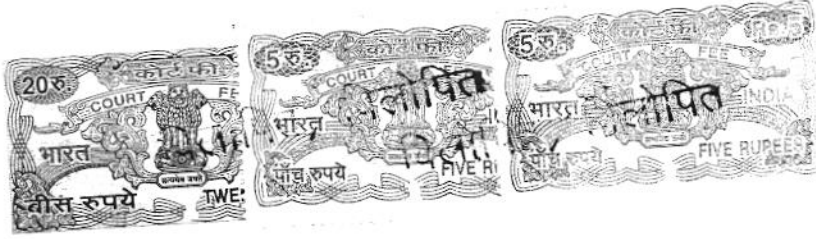 20रु.
कोर्ट फी
COURT FE
भारत
सत्यमेव जयते
बीस रुपये TWE
5 रु.
कोर्ट फी
COURT
भारत
विलोपित
पाँच रुपये
FIVE R
5 रु. कोर्ट फी Rs.5
COURT FEE
भारत INDIA
विलोपित
पाँच रुपये FIVE RUPEES